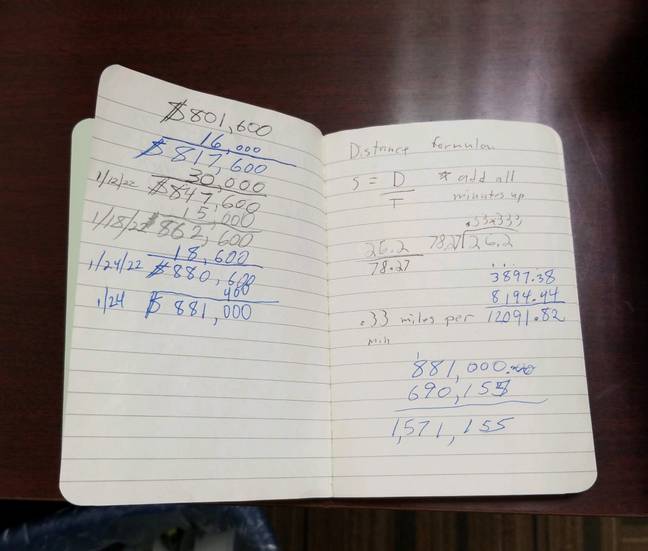 $801,600
16,000
$817,600
30,000
1/12/22 $847,600
15,000
1/18/22 $862,600
18,600
1/24/22 $880,600
400
1/24 $881,000
Distance formulan
S = D * add all
T minutes up
.33x333
26.2 78.27 26.2
78.27
3897.38
8194.44
.33 miles per 12091.82
Min
1
881,000.00
690,155
1,571,155